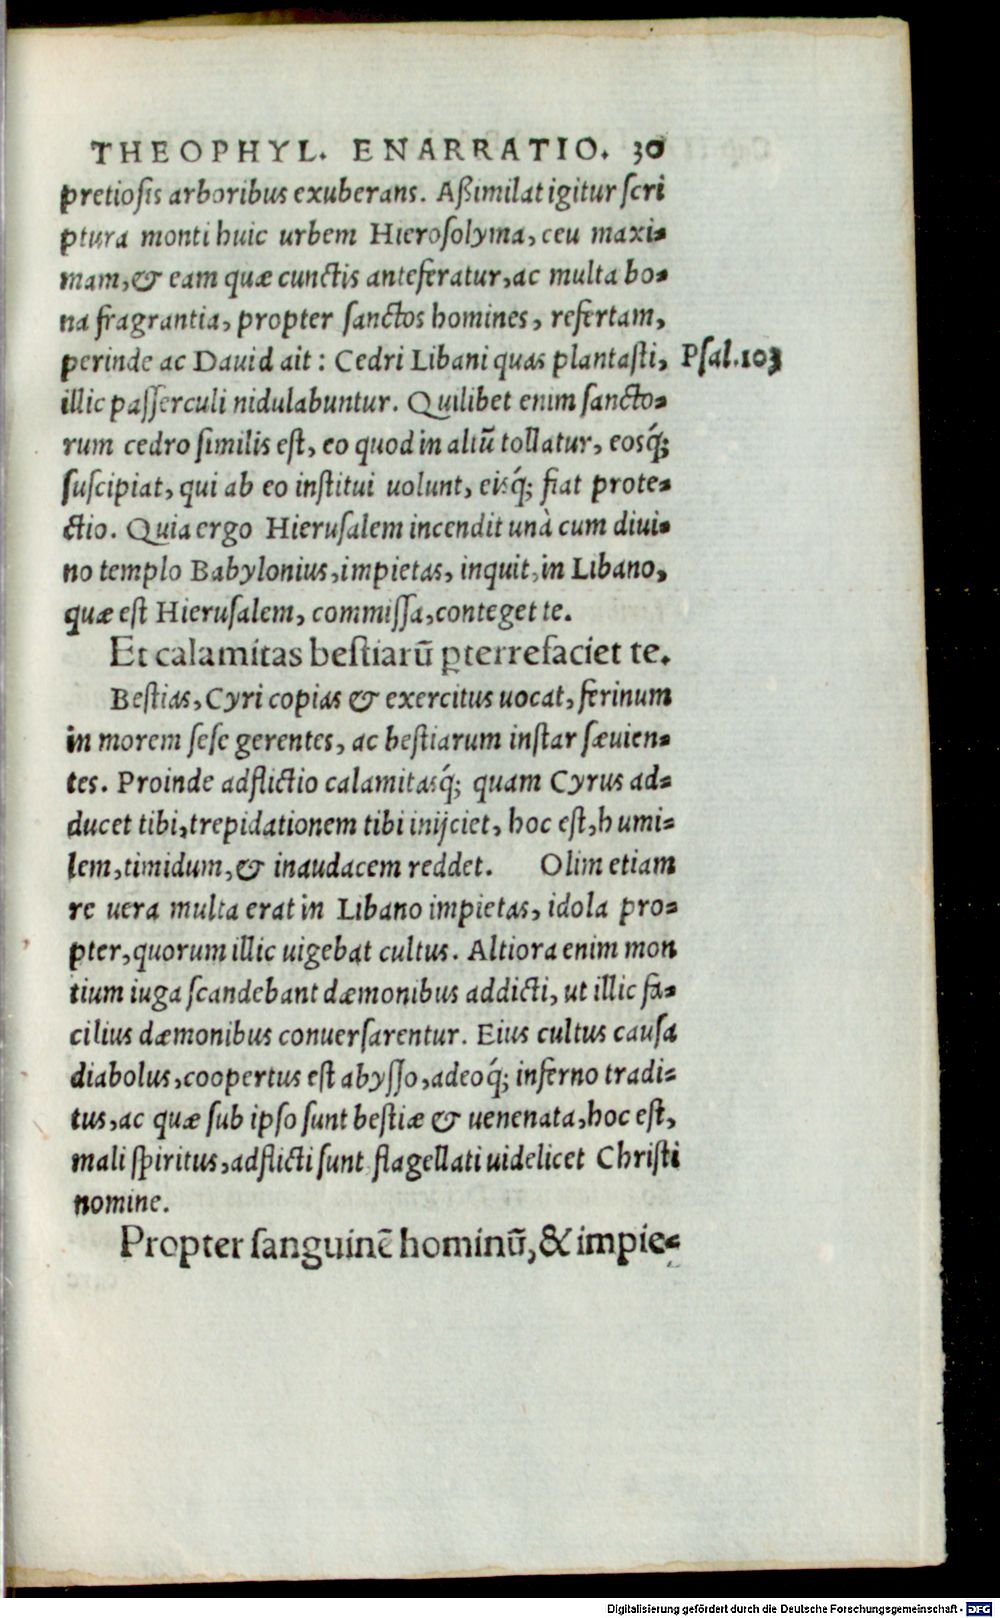 THEOPHYL. ENARRATIO. 30
pretiosis arboribus exuberans. Aßimilat igitur scri
ptura monti huic urbem Hierosolyma, ceu maxi-
mam, & eam quæ cunctis anteferatur, ac multa bo-
na fragrantia, propter sanctos homines, refertam,
perinde ac Dauid ait : Cedri Libani quas plantasti,
Psal.103
illic passerculi nidulabuntur. Quilibet enim sancto-
rum cedro similis est, eo quod in altū tollatur, eosq́;
suscipiat, qui ab eo institui uolunt, eisq́; fiat prote-
ctio. Quia ergo Hierusalem incendit unà cum diui-
no templo Babylonius, impietas, inquit, in Libano,
quæ est Hierusalem, commissa, conteget te.
Et calamitas bestiarū ꝑterrefaciet te.
Bestias, Cyri copias & exercitus uocat, ferinum
in morem sese gerentes, ac bestiarum instar sæuien-
tes. Proinde adflictio calamitasq́; quam Cyrus ad-
ducet tibi, trepidationem tibi inijciet, hoc est, humi-
lem, timidum, & inaudacem reddet. Olim etiam
re uera multa erat in Libano impietas, idola pro-
pter, quorum illic uigebat cultus. Altiora enim mon
tium iuga scandebant dæmonibus addicti, ut illic fa-
cilius dæmonibus conuersarentur. Eius cultus causa
diabolus, coopertus est abysso, adeoq́; inferno tradi-
tus, ac quæ sub ipso sunt bestiæ & uenenata, hoc est,
mali spiritus, adflicti sunt flagellati uidelicet Christi
nomine.
Propter sanguinē hominū, & impie-
Digitalisierung gefördert durch die Deutsche Forschungsgemeinschaft - DFG